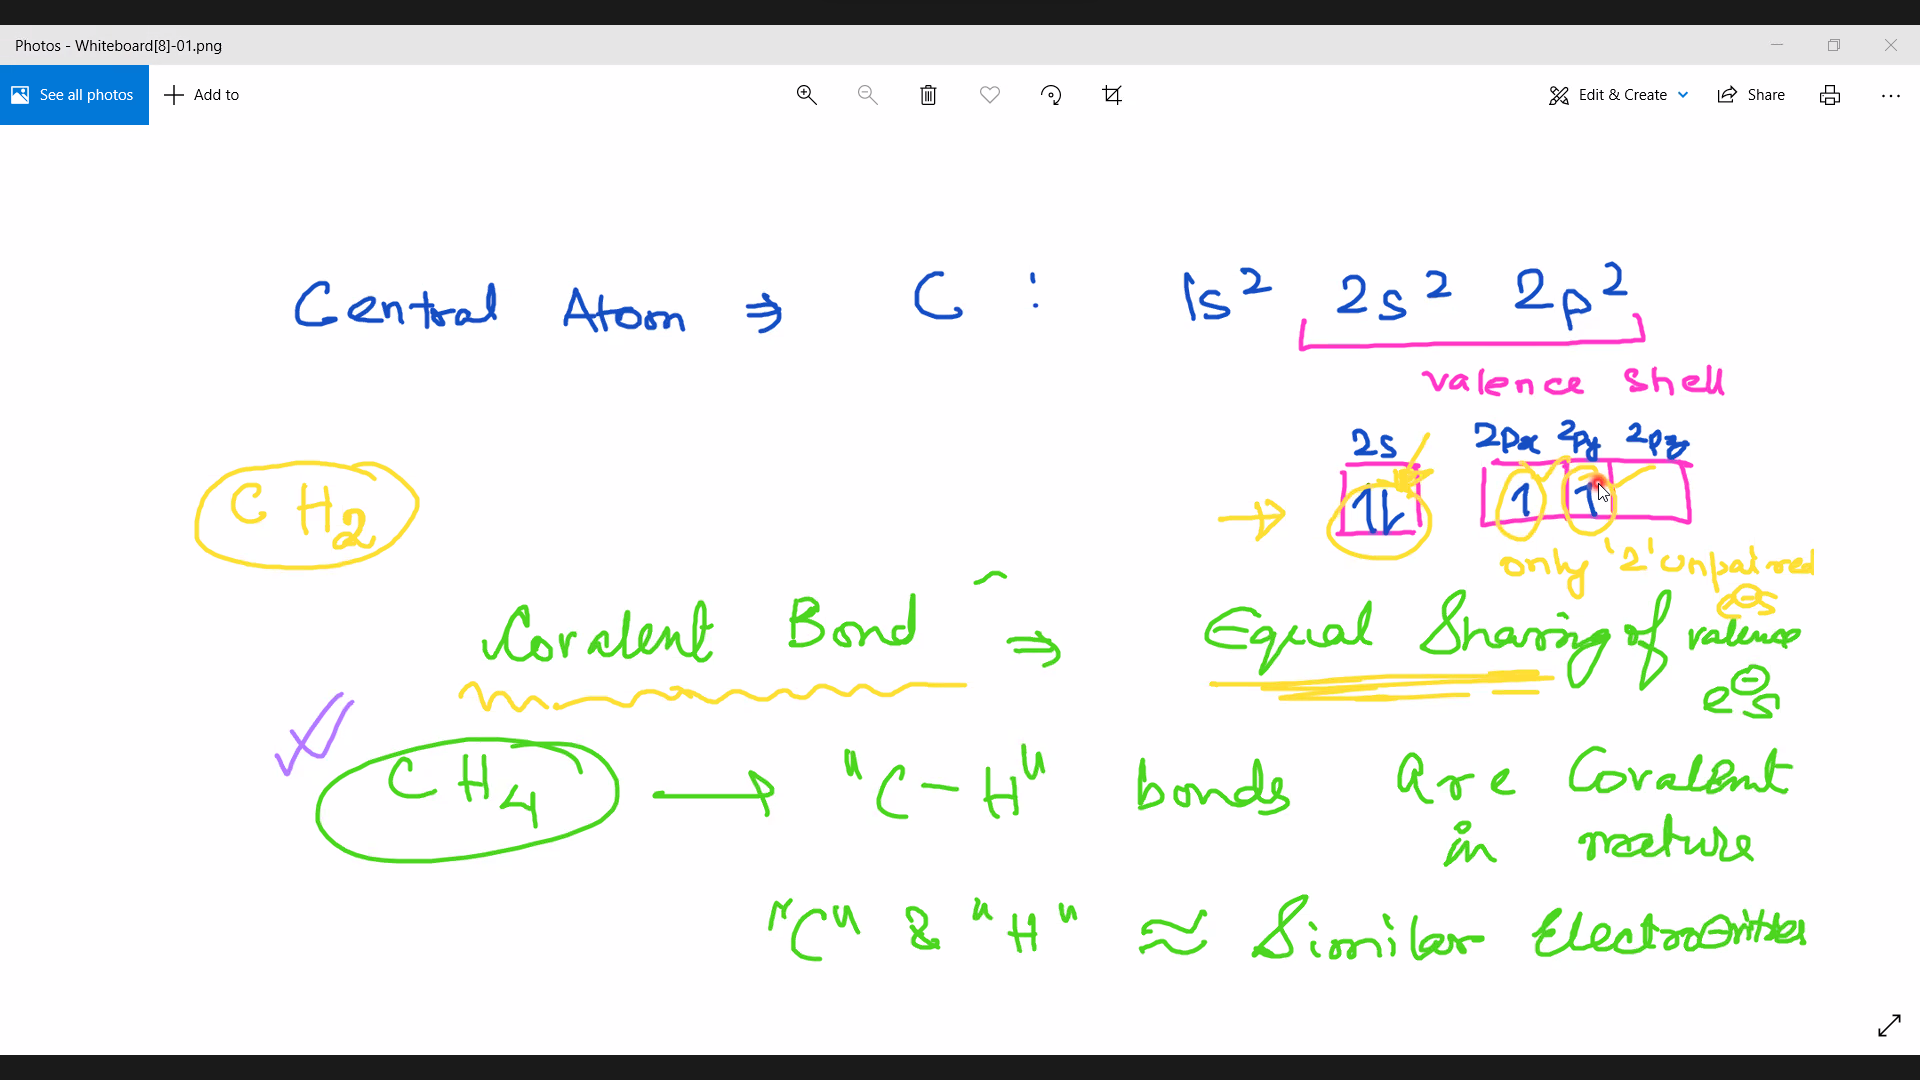 Photos - Whiteboard[8]-01.png
See all photos
Add to
Edit & Create
Share
Central Atom ⇒ C : 1s² 2s² 2p²
valence shell
2s 2px 2py 2pz
CH₂
→ ↿⇂ 1 1
only '2' unpaired
e⊖s
Covalent Bond ⇒ Equal Sharing of valence
e⊖s
CH₄ → "C-H" bonds are Covalent
in nature
"C" & "H" ≈ Similar